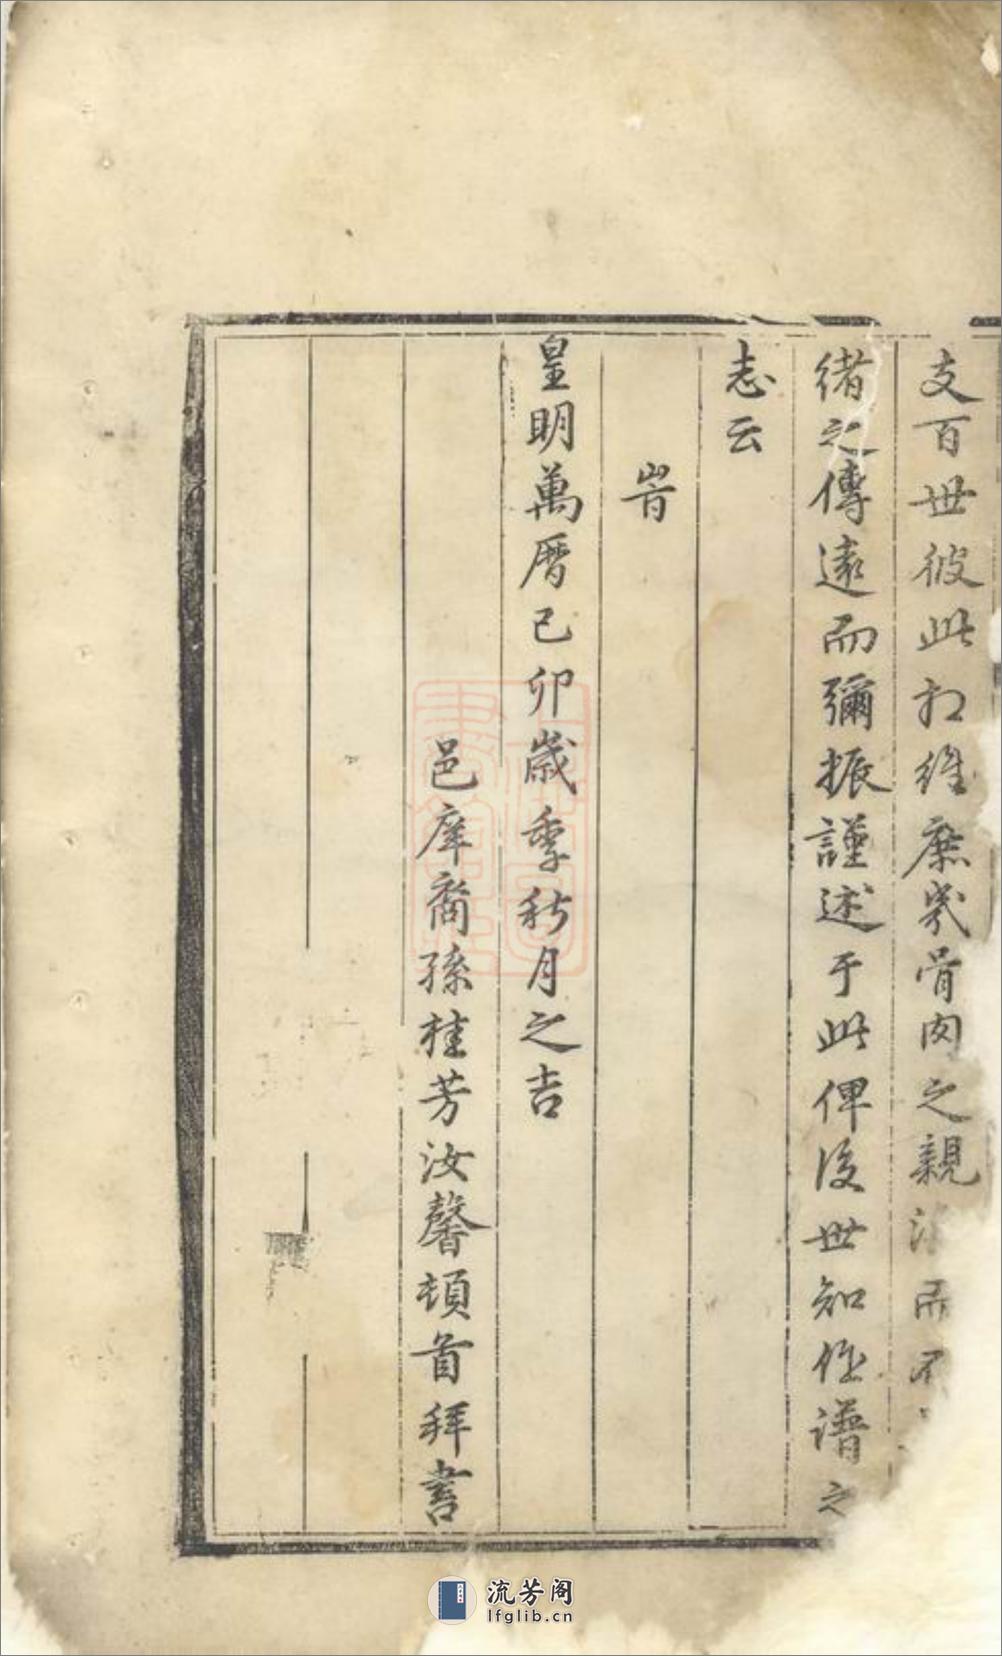 支百世彼此相維庶幾骨肉之親洽而不
緒之傳遠而彌振謹述于此俾後世知作譜之
志云
旹
皇明萬曆己卯歲季秋月之吉
邑庠裔孫桂芳汝馨頓首拜書
流芳阁
lfglib.cn